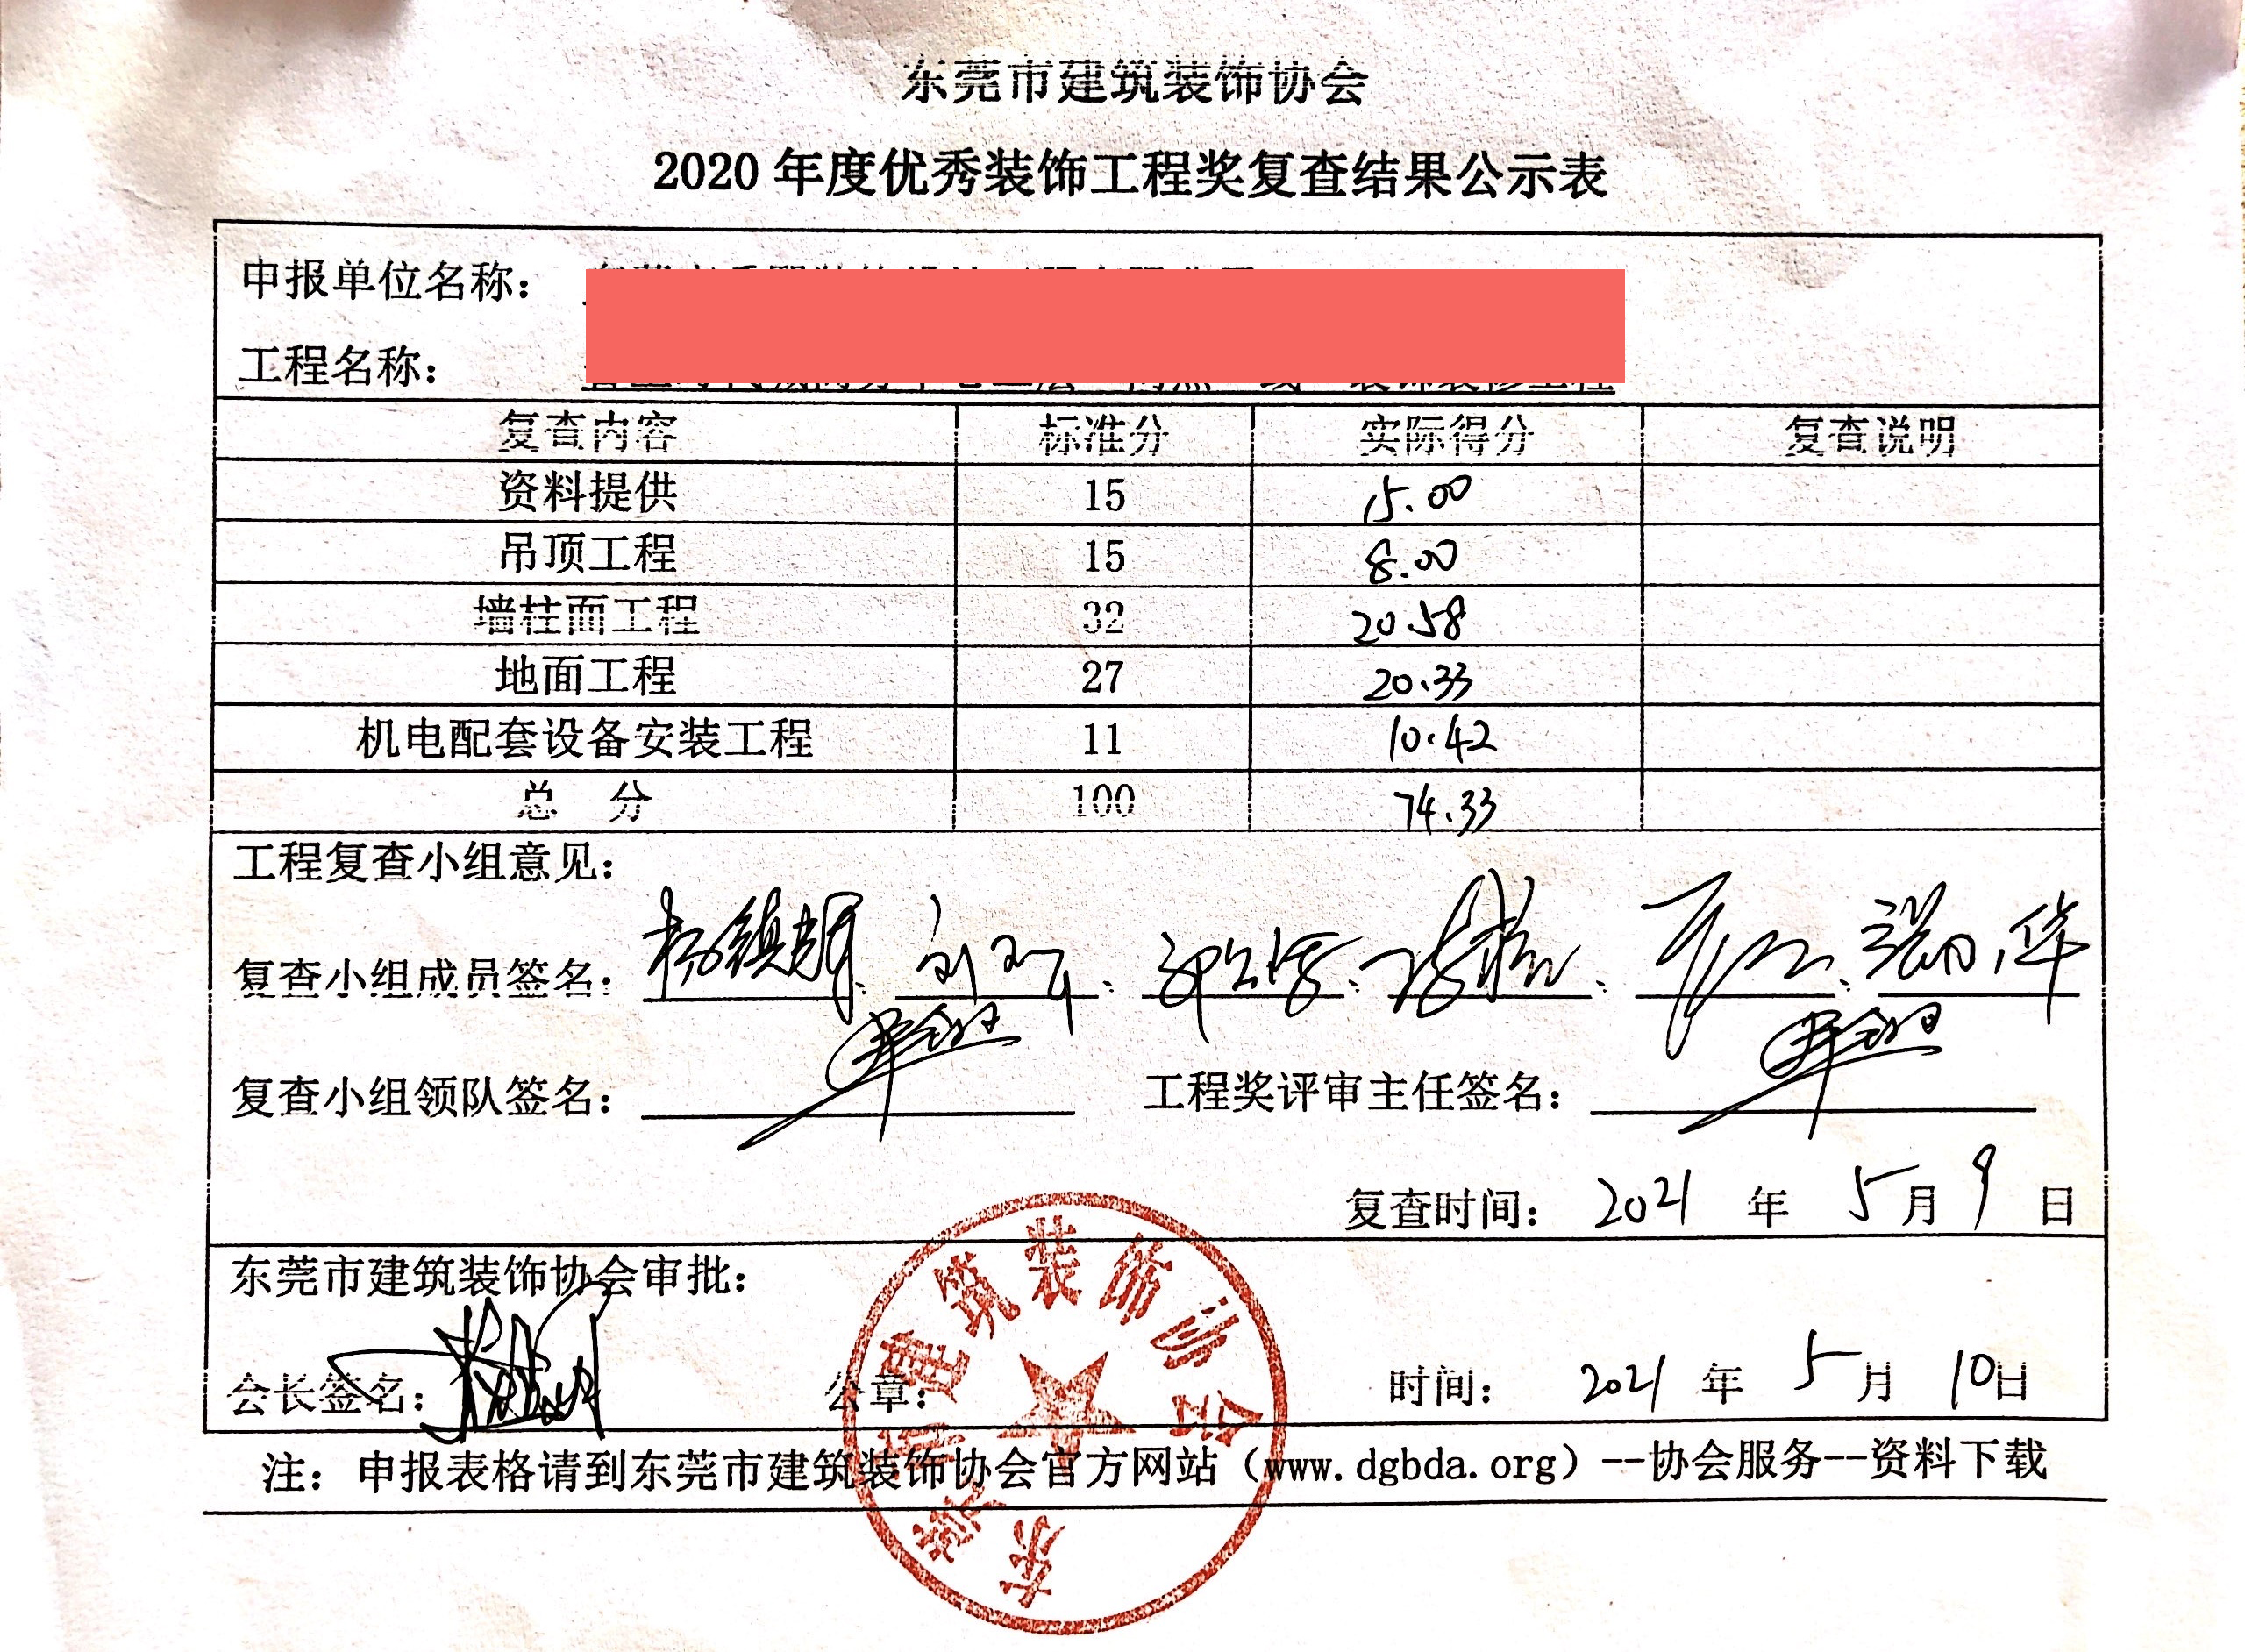 东莞市建筑装饰协会
2020年度优秀装饰工程奖复查结果公示表
申报单位名称：
工程名称：
复查内容 标准分 实际得分 复查说明
资料提供 15 15.00
吊顶工程 15 8.00
墙柱面工程 32 20.58
地面工程 27 20.33
机电配套设备安装工程 11 10.42
总 分 100 74.33
工程复查小组意见：
复查小组成员签名：
复查小组领队签名： 工程奖评审主任签名：
复查时间： 2021 年 5 月 9 日
东莞市建筑装饰协会审批：
会长签名： 公章： 时间： 2021 年 5 月 10 日
东莞市建筑装饰协会
注：申报表格请到东莞市建筑装饰协会官方网站（www.dgbda.org）--协会服务--资料下载